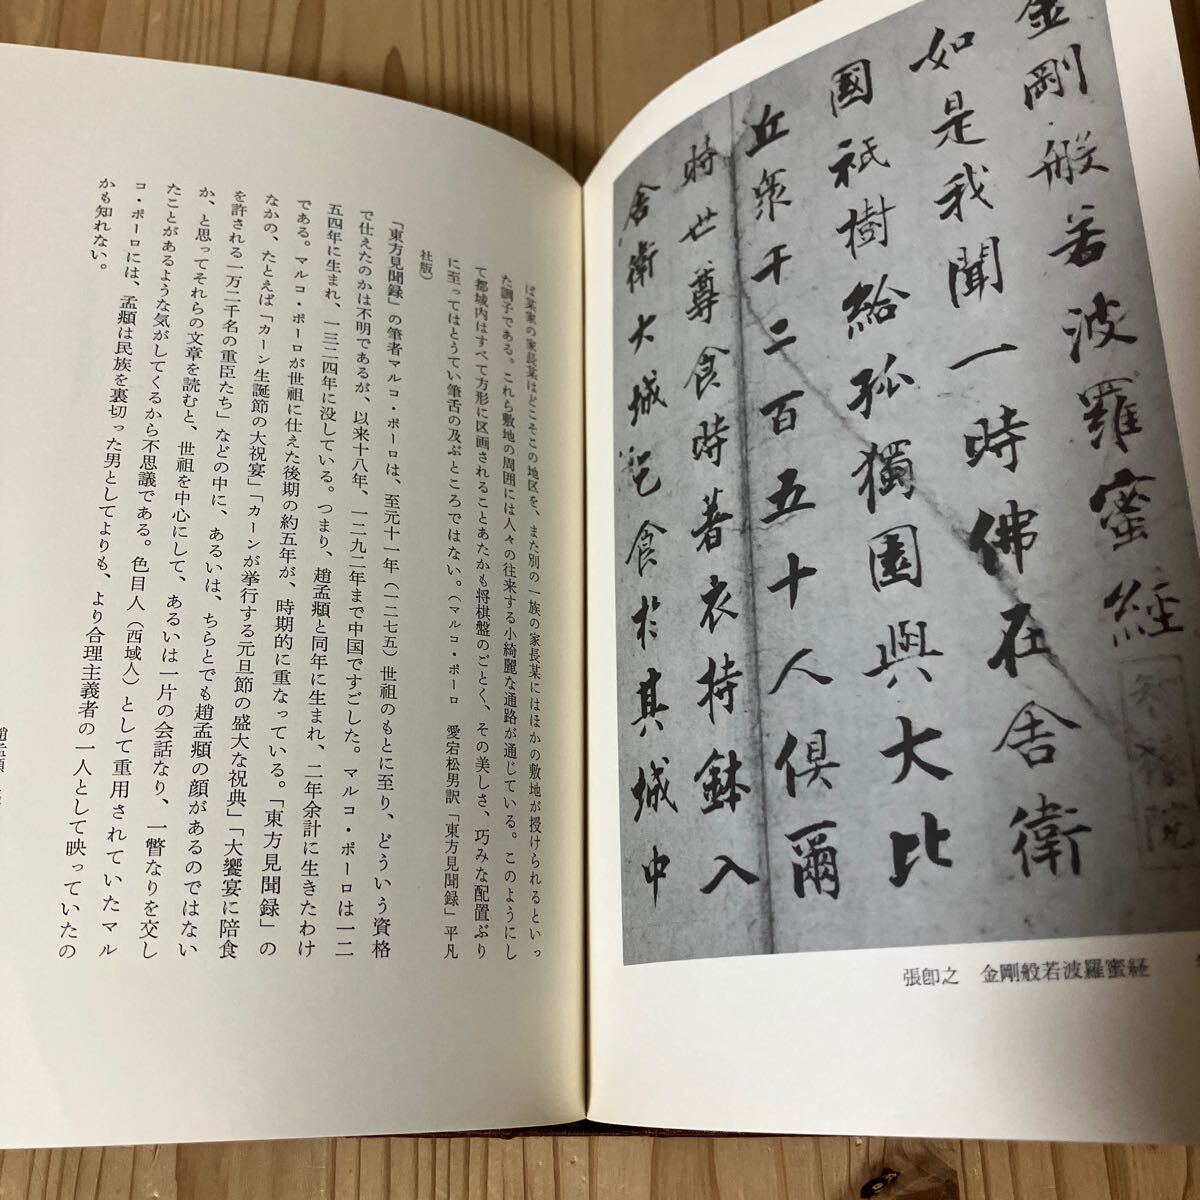 金剛般若波羅蜜経
如是我聞一時佛在舎衛
國祇樹給孤獨園與大比
丘衆千二百五十人倶爾
時世尊食時著衣持鉢入
舎衛大城乞食於其城中
張即之　金剛般若波羅蜜経
ば某家の家長某はどこそこの地区を、また別の一族の家長某にはほかの敷地が授けられるといっ
た調子である。これら敷地の周囲には人々の往来する小綺麗な通路が通じている。このようにし
て都城内はすべて方形に区画されることあたかも将棋盤のごとく、その美しさ、巧みな配置ぶり
に至ってはとうてい筆舌の及ぶところではない。（マルコ・ポーロ　愛宕松男訳「東方見聞録」平凡
社版）
「東方見聞録」の筆者マルコ・ポーロは、至元十一年（一二七五）世祖のもとに至り、どういう資格
で仕えたのかは不明であるが、以来十八年、一二九二年まで中国ですごした。マルコ・ポーロは一二
五四年に生まれ、一三二四年に没している。つまり、趙孟頫と同年に生まれ、二年余計に生きたわけ
である。マルコ・ポーロが世祖に仕えた後期の約五年が、時期的に重なっている。「東方見聞録」の
なかの、たとえば「カーン生誕節の大祝宴」「カーンが挙行する元旦節の盛大な祝典」「大饗宴に陪食
を許される一万二千名の重臣たち」などの中に、あるいは、ちらとでも趙孟頫の顔があるのではない
か、と思ってそれらの文章を読むと、世祖を中心にして、あるいは一片の会話なり、一瞥なりを交し
たことがあるような気がしてくるから不思議である。色目人（西域人）として重用されていたマル
コ・ポーロには、孟頫は民族を裏切った男としてよりも、より合理主義者の一人として映っていたの
かも知れない。
趙孟頫